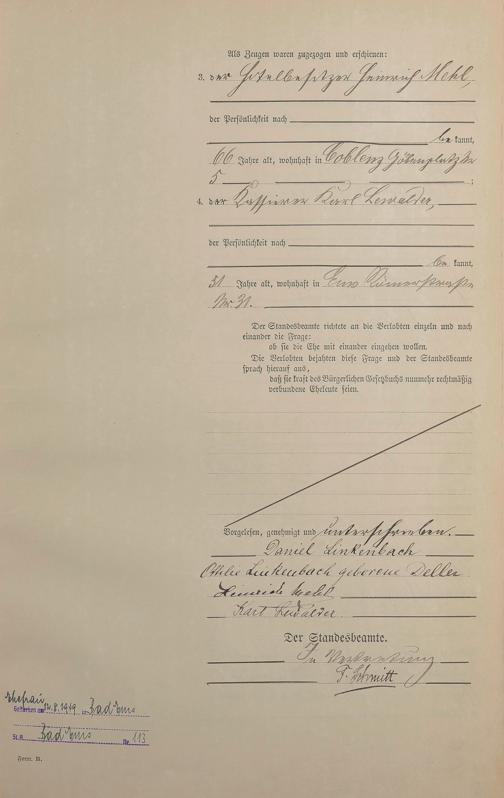 Als Zeugen waren zugezogen und erschienen:
3. der Hotelbesitzer Heinrich Mehl,
der Persönlichkeit nach
be kannt,
66 Jahre alt, wohnhaft in Coblenz Göbenplatz Nr
5 ;
4. der Kassierer Karl Lewalder,
der Persönlichkeit nach
be kannt,
51 Jahre alt, wohnhaft in Ems Römerstraße
Nr. 31.
Der Standesbeamte richtete an die Verlobten einzeln und nach
einander die Frage:
ob sie die Ehe mit einander eingehen wollen.
Die Verlobten bejahten diese Frage und der Standesbeamte
sprach hierauf aus,
daß sie kraft des Bürgerlichen Gesetzbuchs nunmehr rechtmäßig
verbundene Eheleute seien.
Vorgelesen, genehmigt und unterschrieben.
Daniel Linkenbach
Ottilie Linkenbach geborene Deller
Heinrich Mehl
Karl Lewalder.
Der Standesbeamte.
In Vertretung
F. Schmitt
Ehefrau
Gestorben am 14.8.1919 in Bad Ems
St.A. Bad Ems Nr. 113
Form. B.